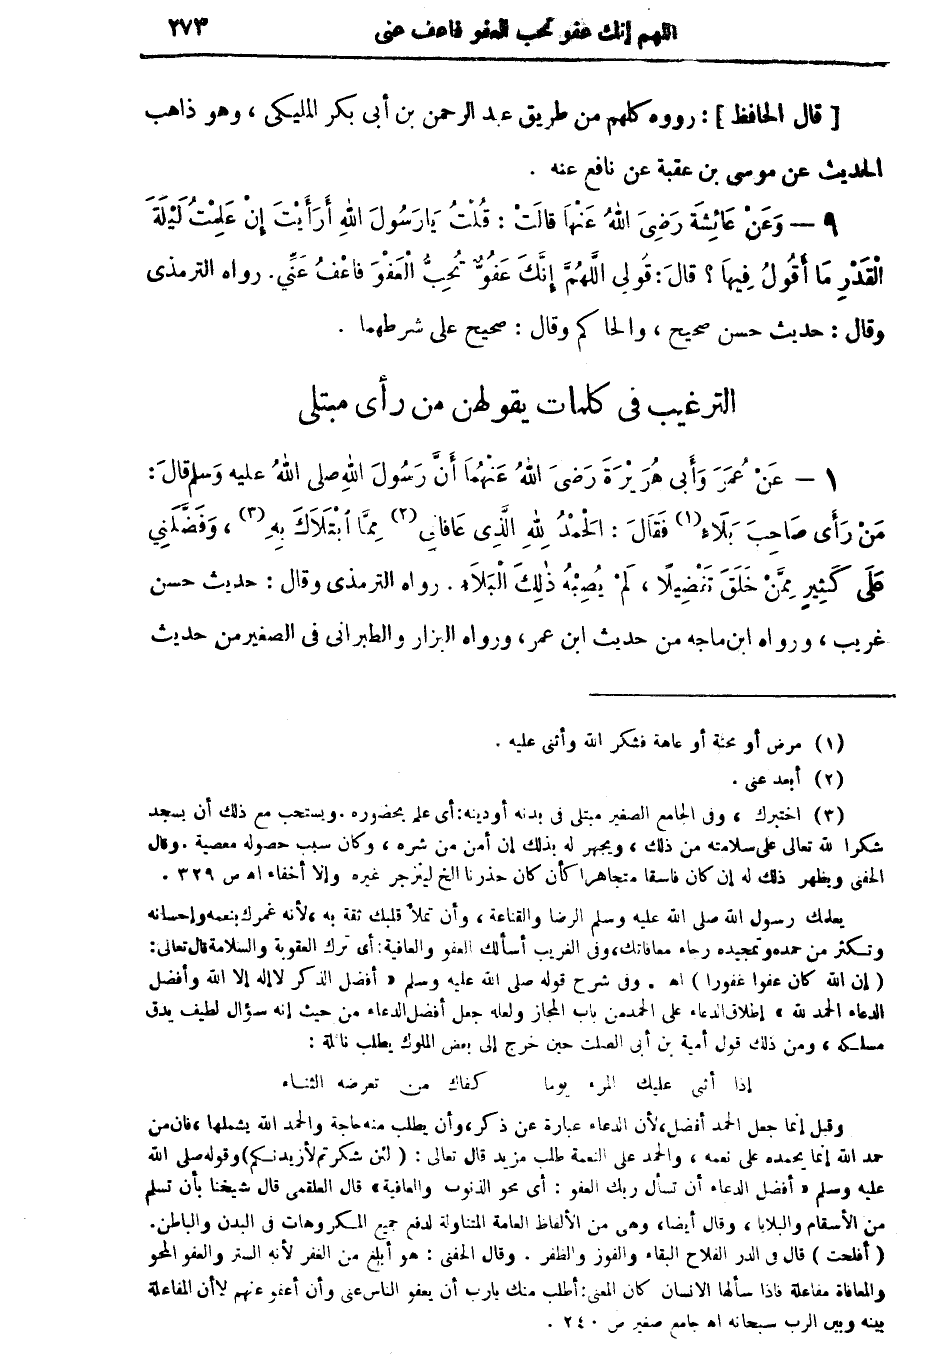 اللهم إنك عفو تحب العفو فاعف عنى ٢٧٣
[ قال الحافظ ] : رووه كلهم من طريق عبد الرحمن بن أبى بكر المليكى ، وهو ذاهب
الحديث عن موسى بن عقبة عن نافع عنه .
٩ — وَعَنْ عَائِشَةَ رَضِىَ اللهُ عَنْهَا قَالَتْ : قُلْتُ يَارَسُولَ اللهِ أَرَأَيْتَ إِنْ عَلِمْتُ لَيْلَةَ
الْقَدْرِ مَا أَقُولُ فِيهَا ؟ قَالَ : قُولِى اللَّهُمَّ إِنَّكَ عَفُوٌّ تُحِبُّ الْعَفْوَ فَاعْفُ عَنِّي . رواه الترمذى
وقال : حديث حسن صحيح ، والحاكم وقال : صحيح على شرطهما .
الترغيب فى كلمات يقولهن من رأى مبتلى
١ — عَنْ عُمَرَ وَأَبِى هُرَيْرَةَ رَضِىَ اللهُ عَنْهُمَا أَنَّ رَسُولَ اللهِ صلى اللهُ عليه وَسلم قالَ :
مَنْ رَأَى صَاحِبَ بَلَاءٍ (١) فَقَالَ : الْحَمْدُ لِلهِ الَّذِى عَافَانِى (٢) مِمَّا ابْتَلَاكَ بِهِ (٣) ، وَفَضَّلَنِي
عَلَى كَثِيرٍ مِمَّنْ خَلَقَ تَفْضِيلًا ، لَمْ يُصِبْهُ ذٰلِكَ الْبَلَاءُ . رواه الترمذى وقال : حديث حسن
غريب ، ورواه ابن ماجه من حديث ابن عمر ، ورواه البزار والطبرانى فى الصغير من حديث
(١) مرض أو محنة أو عاهة فشكر الله وأثنى عليه .
(٢) أبعد عنى .
(٣) اختبرك ، وفى الجامع الصغير مبتلى فى بدنه أو دينه : أى علم بحضوره . ويستحب مع ذلك أن يسجد
شكرا لله تعالى على سلامته من ذلك ، ويجهر له بذلك إن أمن من شره ، وكان سبب حصوله معصية . وقال
الحفنى ويظهر ذلك له إن كان فاسقا متجاهرا كأن كان حذرنا الخ لينزجر غيره وإلا أخفاه اهـ ص ٣٢٩ .
يعلمك رسول الله صلى الله عليه وسلم الرضا والقناعة ، وأن تملأ قلبك ثقة به ، لأنه غمرك بنعمه وإحسانه
وتكثر من حمده وتمجيده رجاء معافاتك ، وفى الغريب أسألك العفو والعافية : أى ترك العقوبة والسلامة قال تعالى :
( إن الله كان عفوا غفورا ) اهـ . وفى شرح قوله صلى الله عليه وسلم « أفضل الذكر لا إله إلا الله وأفضل
الدعاء الحمد لله » إطلاق الدعاء على الحمد من باب المجاز ولعله جعل أفضل الدعاء من حيث إنه سؤال لطيف يدق
مسلكه ، ومن ذلك قول أمية بن أبى الصلت حين خرج إلى بعض الملوك يطلب نائلة :
إذا أثنى عليك المرء يوما كفاك من تعرضه الثناء
وقيل إنما جعل الحمد أفضل ، لأن الدعاء عبارة عن ذكر ، وأن يطلب منه حاجة والحمد الله يشملها ، فان من
حمد الله إنما يحمده على نعمه ، والحمد على النعمة طلب مزيد قال تعالى : ( لئن شكرتم لأزيدنكم ) وقوله صلى الله
عليه وسلم « أفضل الدعاء أن تسأل ربك العفو : أى محو الذنوب والعافية » قال العلقمى قال شيخنا بأن تسلم
من الأسقام والبلايا ، وقال أيضا ، وهى من الألفاظ العامة المتناولة لدفع جميع المكروهات فى البدن والباطن .
( أفلحت ) قال فى الدر الفلاح البقاء والفوز والظفر . وقال الحفنى : هو أبلغ من الغفر لأنه الستر والعفو المحو
والمعافاة مفاعلة فاذا سألها الانسان كان المعنى : أطلب منك يارب أن يعفو الناس عنى وأن أعفو عنهم لا أن المفاعلة
بينه وبين الرب سبحانه اهـ جامع صغير ص ٢٤٠ .